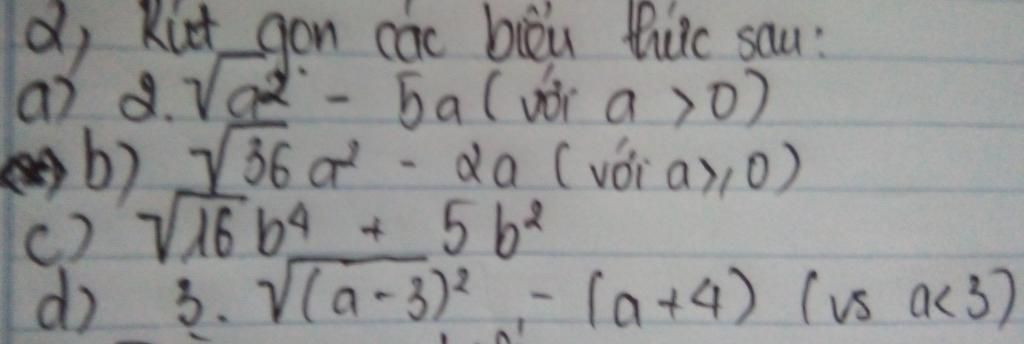 2, Rút gọn các biểu thức sau:
a) 2.√a² - 5a (với a > 0)
b) √36a² - 2a (với a ≥ 0)
c) √16b⁴ + 5b²
d) 3.√(a-3)² - (a+4) (vs a<3)